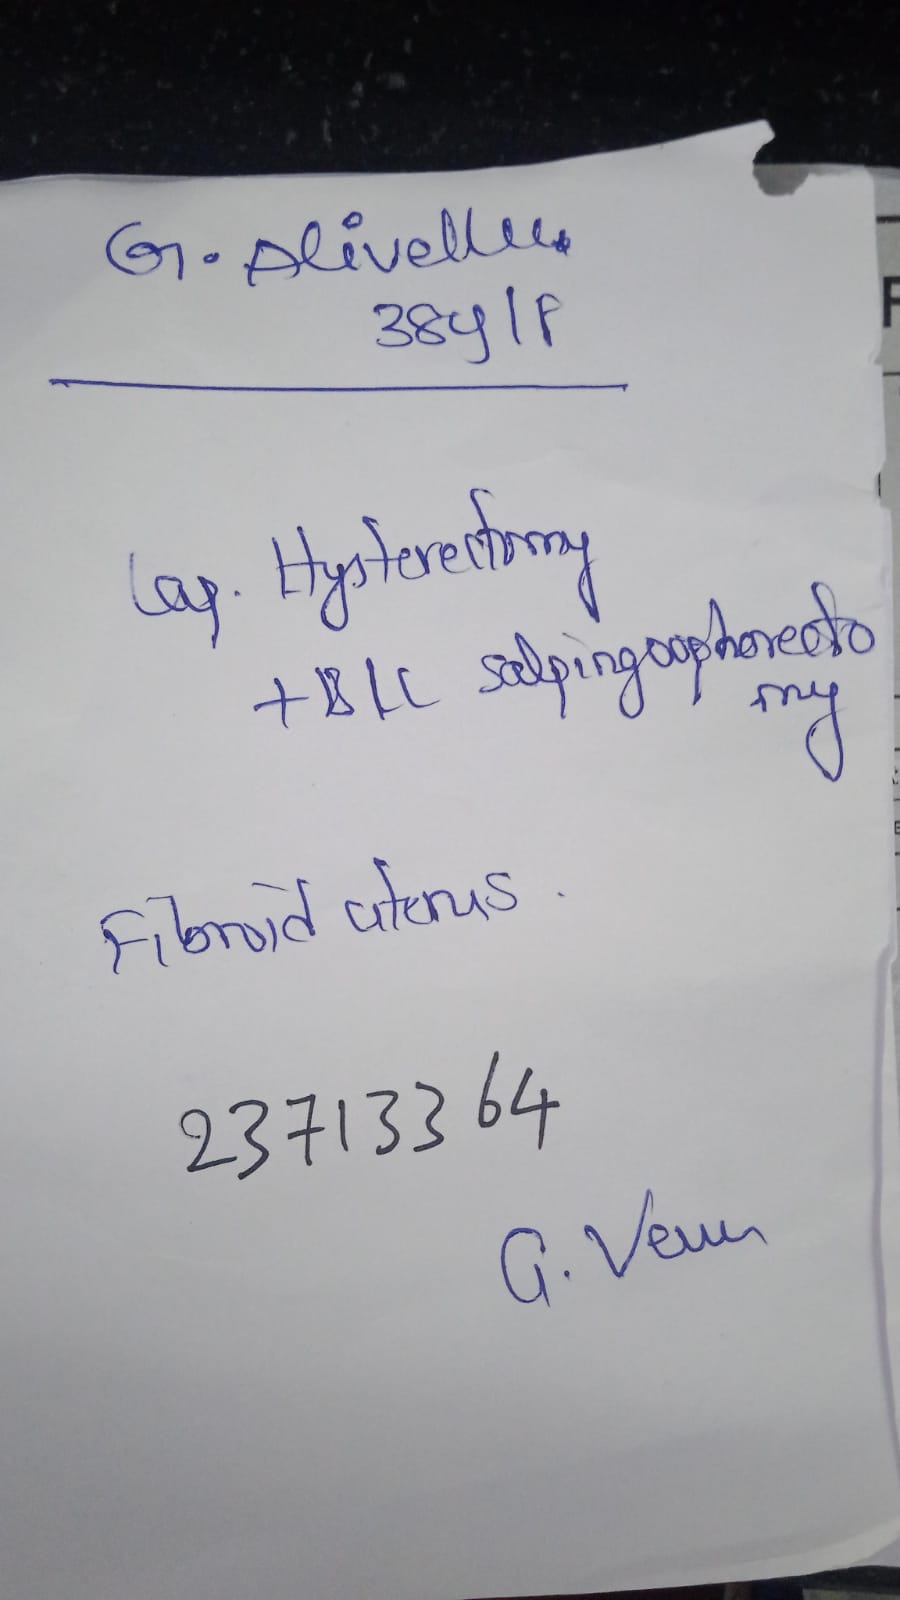 G. Alivelu.
38y/F
Lap. Hysterectomy
+ B/L salpingoophorecto
my
Fibroid uterus.
23713364
G. Venu